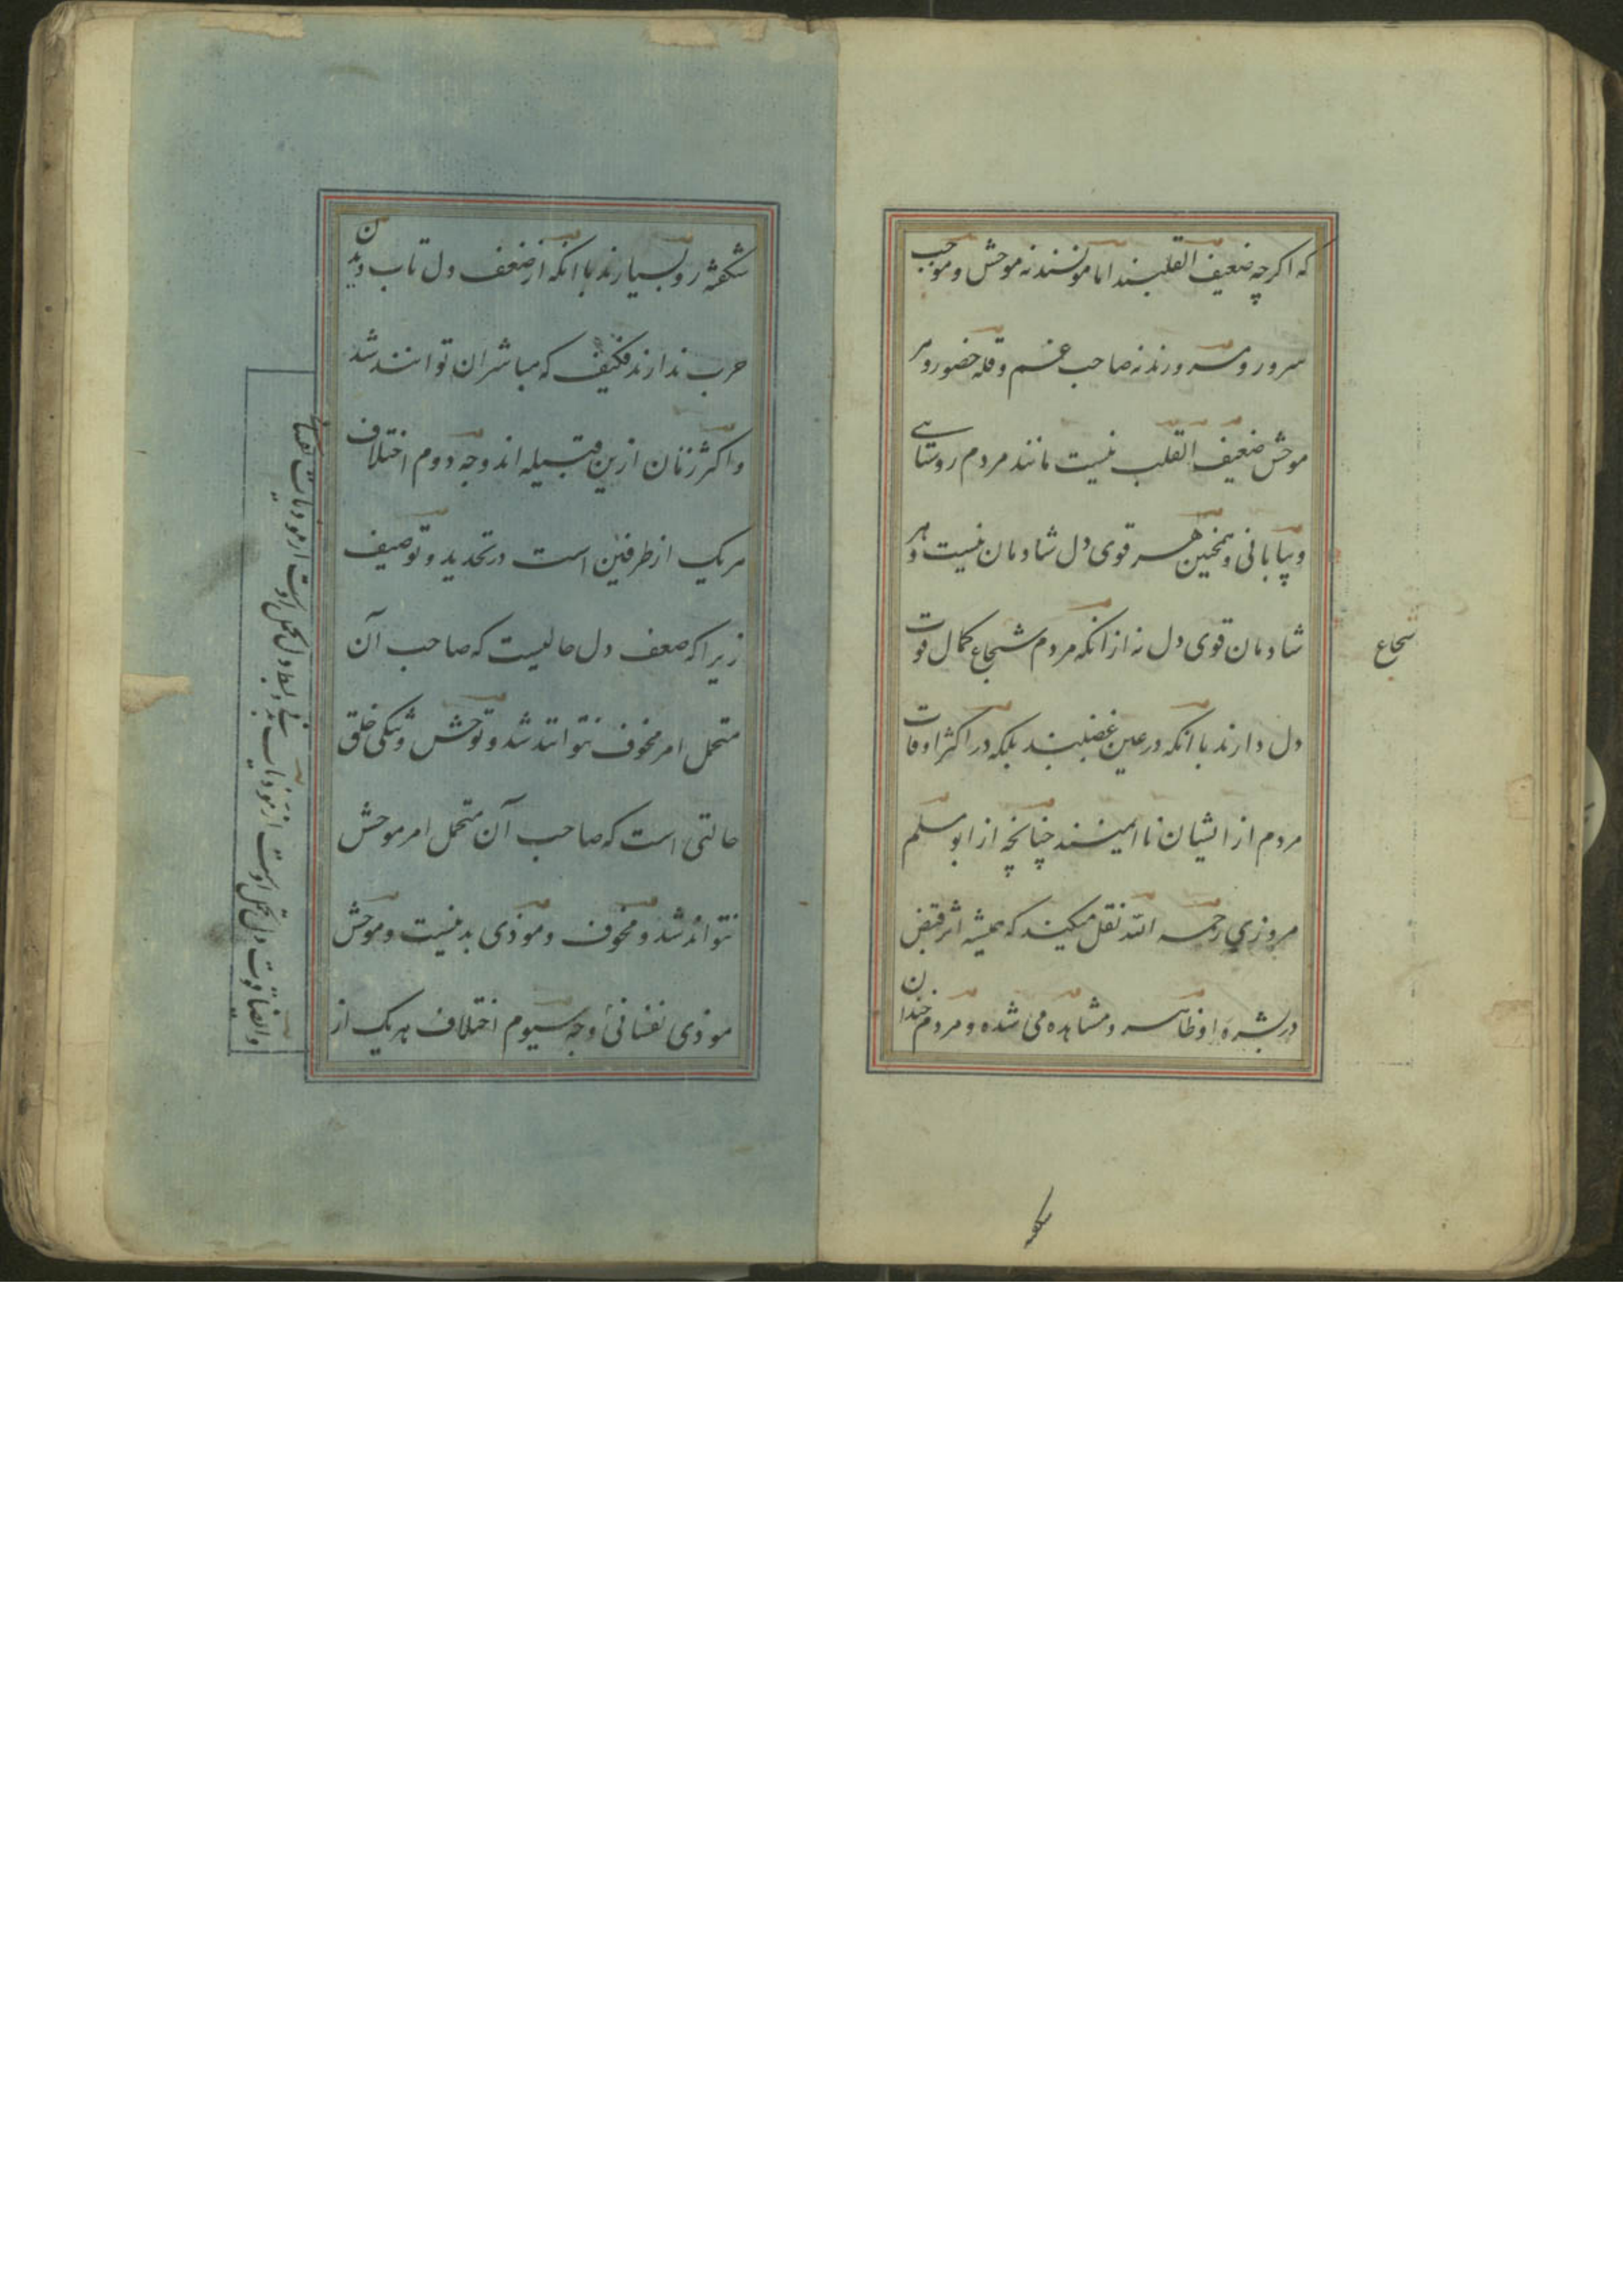 که اکرچه ضعیف القلبند اما مونسند نه موحش و موجب
سرور و مسرورند نه صاحب غم و قله حضور و هر
موحش ضعیف القلب نیست مانند مردم روستایی
و بیابانی و همچنین هر قوی دل شادمان نیست و هر
شادمان قوی دل نه از انکه مردم شجاع کمال قوت
دل دارند با انکه در عین غضبند بلکه در اکثر اوقات
مردم از ایشان نا ایمنند چنانچه از ابو مسلم
مروزی رحمه الله نقل میکنند که همیشه اثر قبض
در بشره او ظاهر و مشاهده می شده و مردم خندان
شجاع
شکفته رو بسیارند با انکه از ضعف دل تاب دیدن
حرب ندارند فکیف که مباشر ان توانند شد
و اکثر زنان ازین قبیله اند وجه دوم اختلاف
هر یک از طرفین است در تحدید و توصیف
زیرا که ضعف دل حالیست که صاحب آن
متحمل امر مخوف نتواند شد و توحش و تنکی خلق
حالتی است که صاحب آن متحمل امر موحش
نتواند شد و مخوف و موذی بدنیست و موحش
موذی نفسانی وجه سیوم اختلاف هر یک از